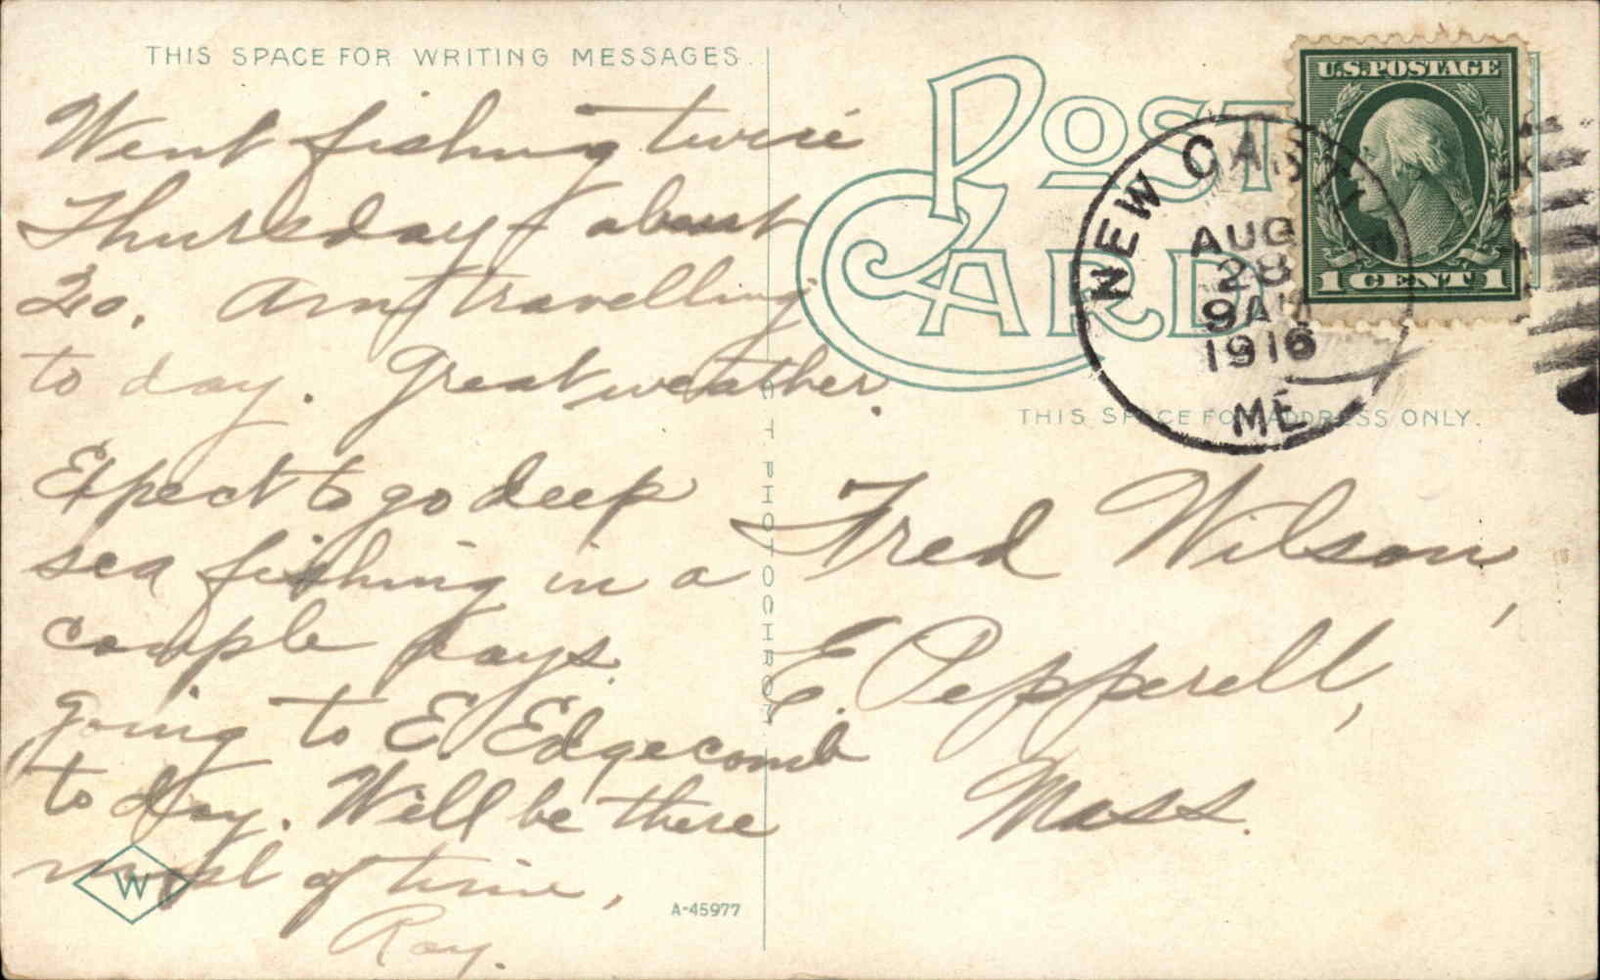 THIS SPACE FOR WRITING MESSAGES
Went fishing twice
Thursday - about
20. Arn't travelling
to day. Great weather.
Expect to go deep
sea fishing in a
couple days.
Going to E. Edgecomb
to day. Will be there
most of time,
Ray.
W
A-45977
POST CARD
U.S. POSTAGE
1 CENT 1
NEW CAS
AUG
28
9 AM
1916
ME.
THIS SPACE FOR ADDRESS ONLY.
Fred Wilson,
E. Pepperell,
Mass.